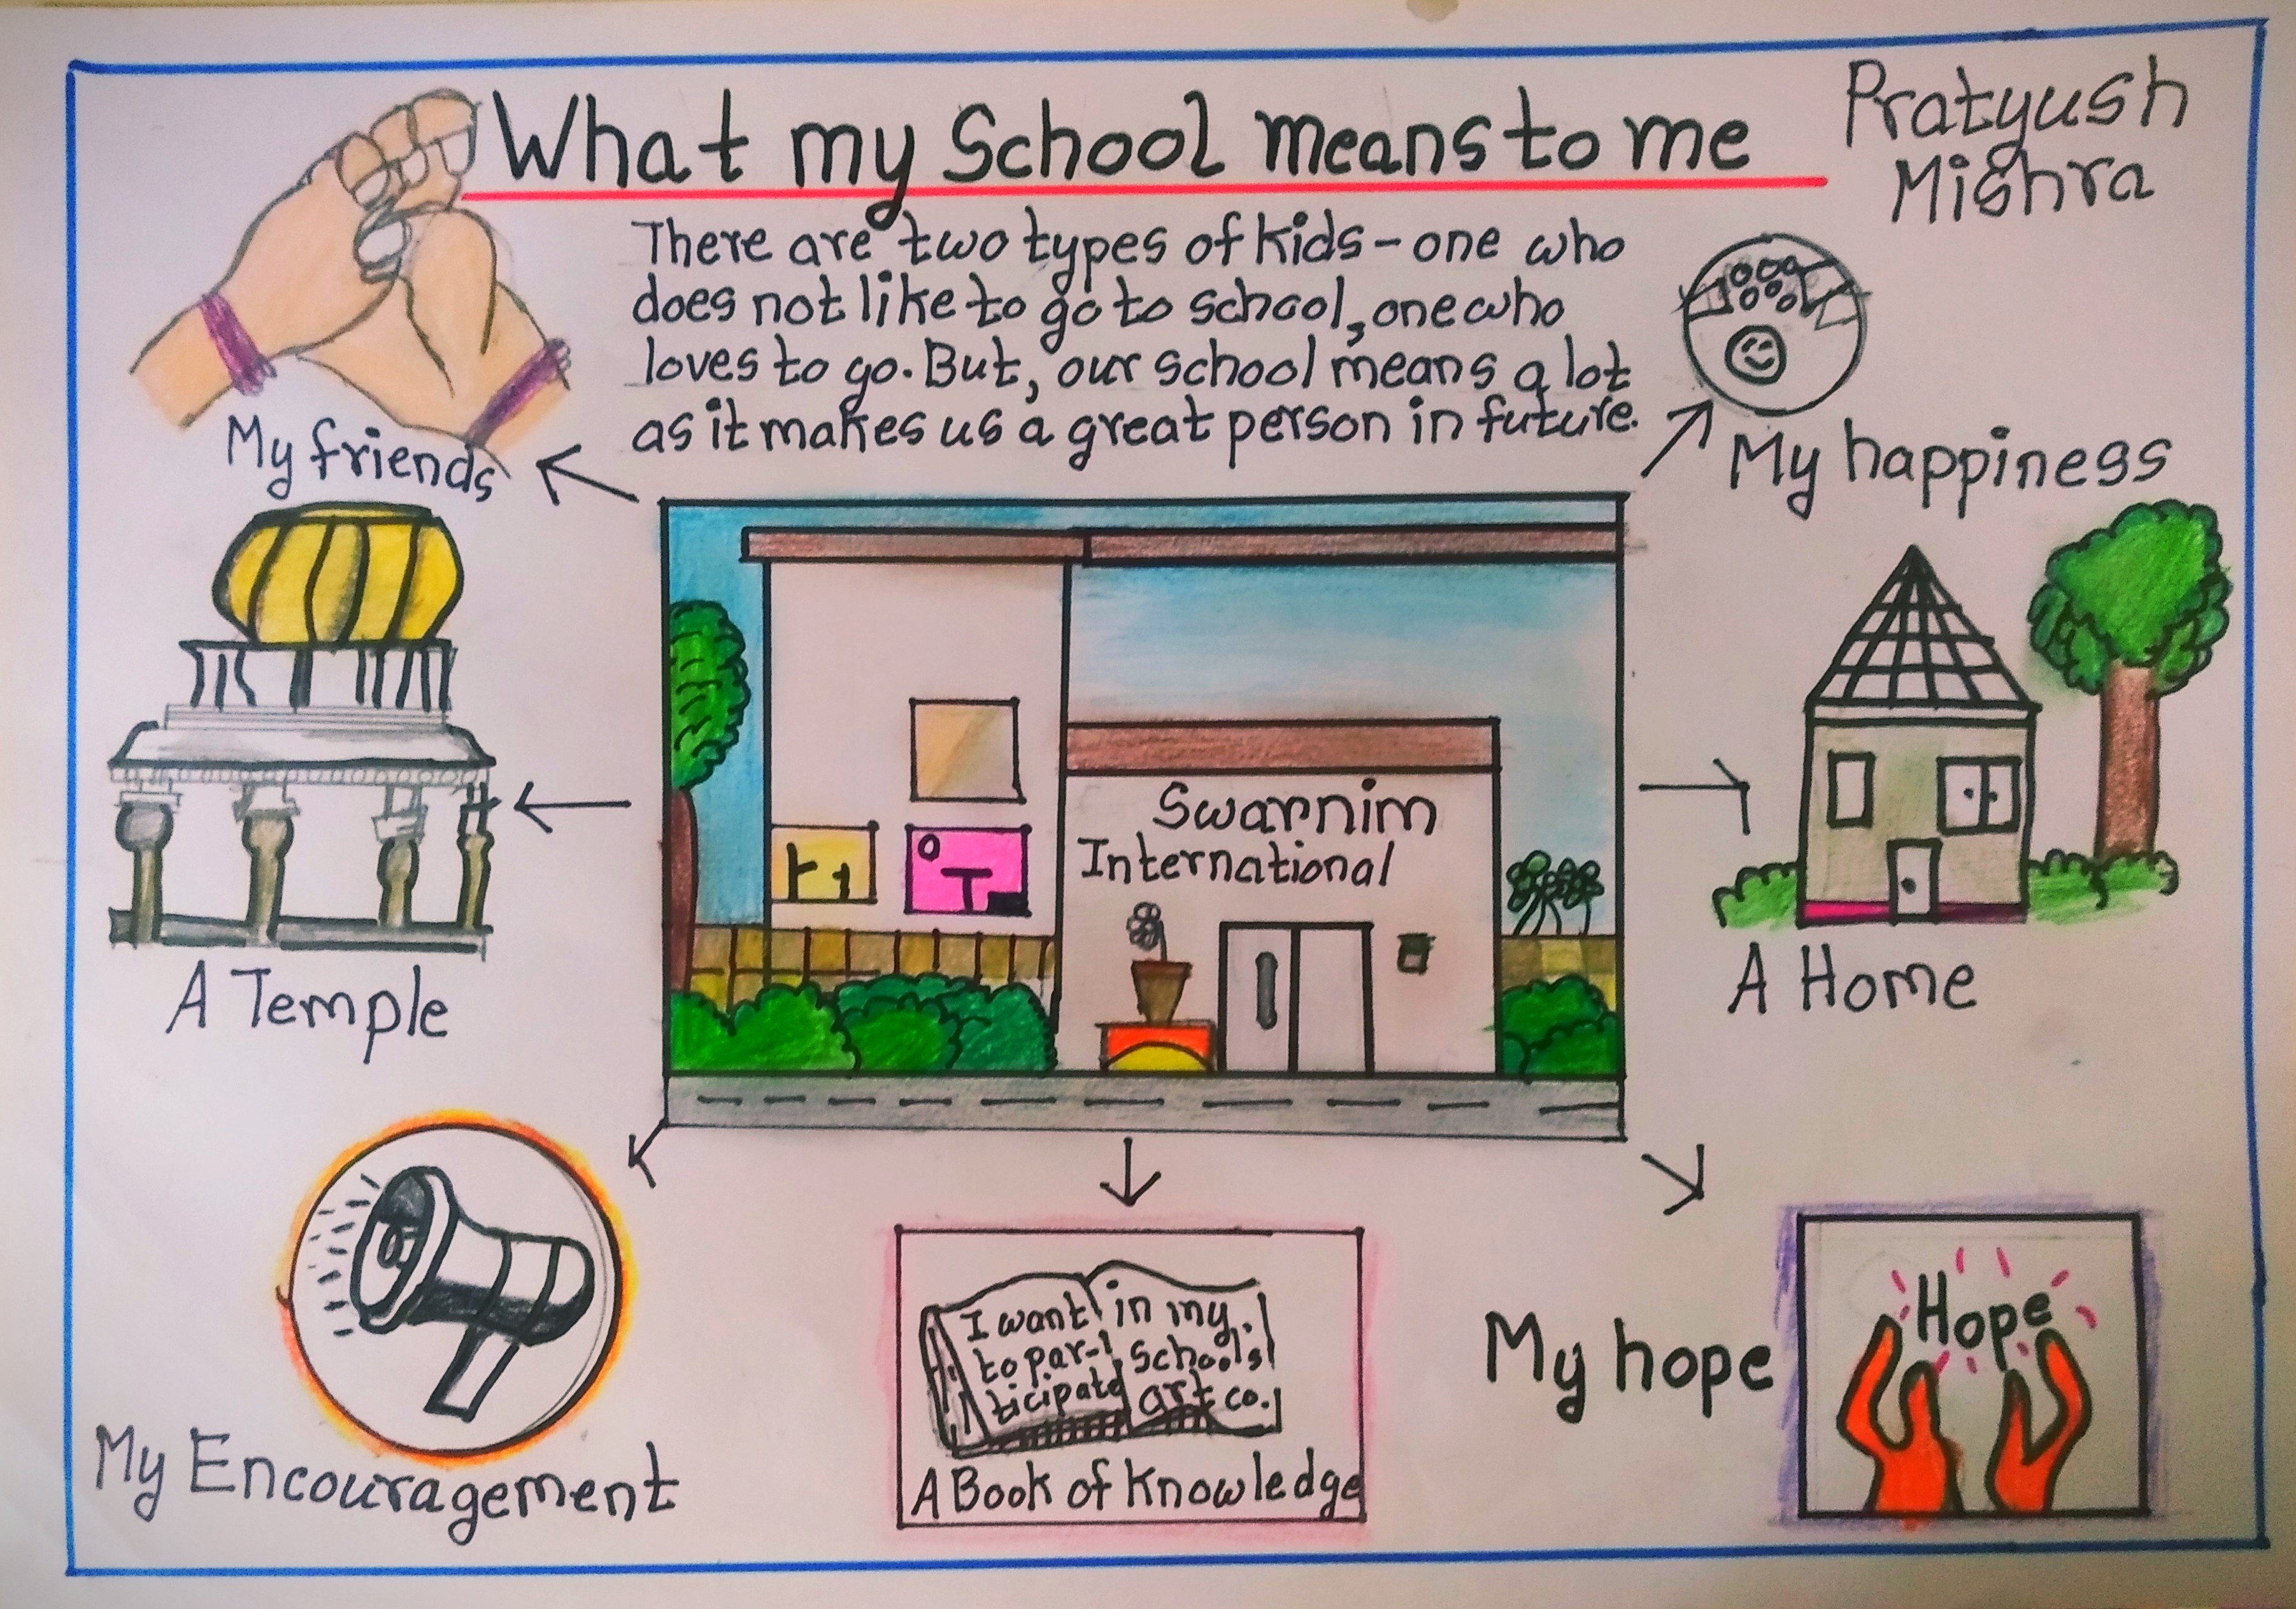 What my School means to me
Pratyush
Mishra
There are two types of kids - one who
does not like to go to school, one who
loves to go. But, our school means a lot
as it makes us a great person in future.
My friends
My happiness
A Temple
Swarnim
International
A Home
My Encouragement
I want
to par-
ticipate
in my
School's
art co.
A Book of Knowledge
My hope
Hope